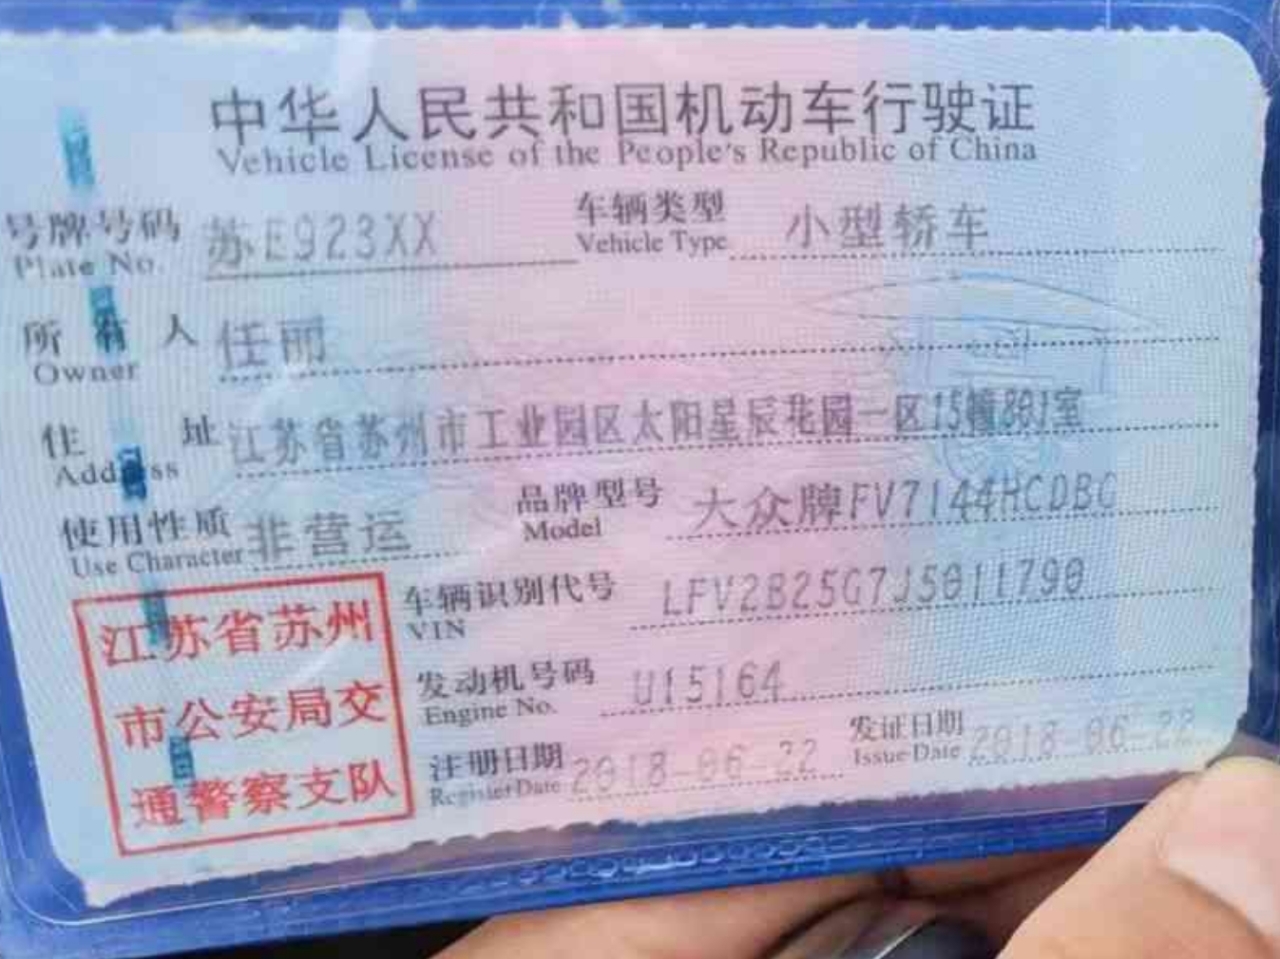 中华人民共和国机动车行驶证
Vehicle License of the People's Republic of China
号牌号码 苏E923XX 车辆类型 小型轿车
Plate No. Vehicle Type
所有人 任丽
Owner
住址 江苏省苏州市工业园区太阳星辰花园一区15幢801室
Address
使用性质 非营运 品牌型号 大众牌FV7144HCDBG
Use Character Model
江苏省苏州
市公安局交
通警察支队
车辆识别代号 LFV2B25G7J5011790
VIN
发动机号码 U15164
Engine No.
注册日期 2018-06-22 发证日期 2018-06-22
Register Date Issue Date